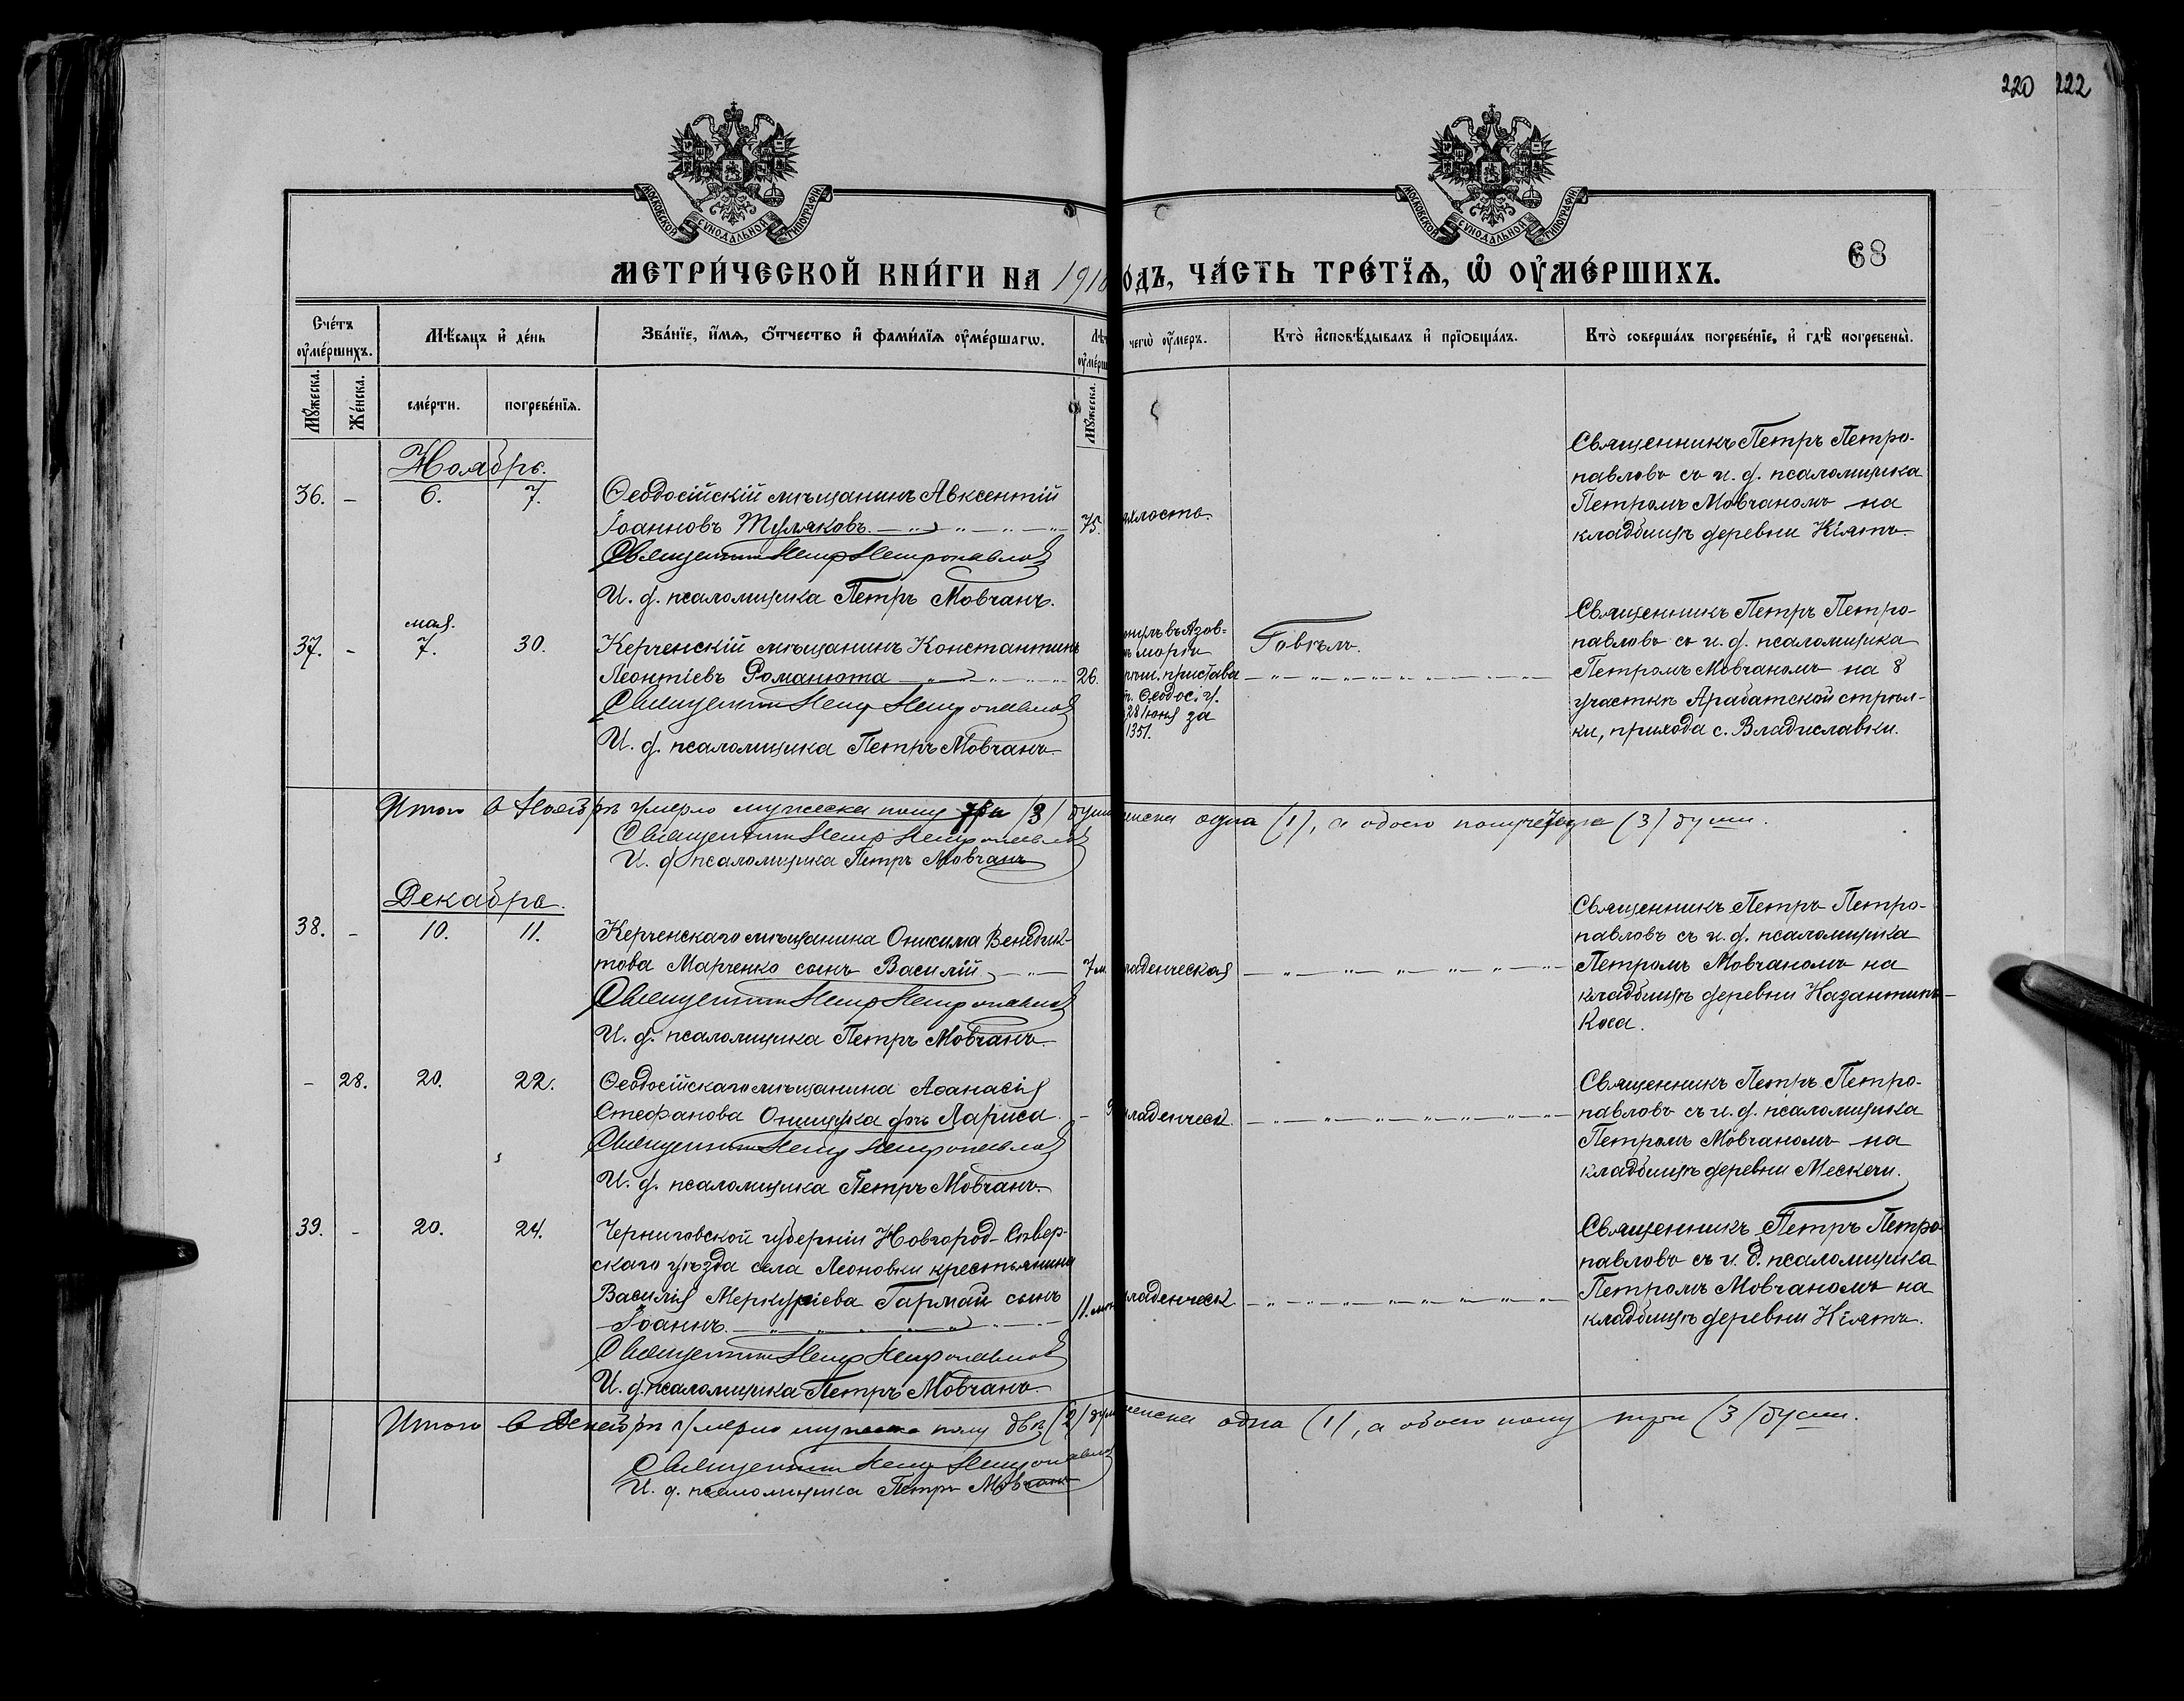 220 222
МОСКОВСКОЙ СѴНОДАЛЬНОЙ ТИПОГРАФІИ
МОСКОВСКОЙ СѴНОДАЛЬНОЙ ТИПОГРАФІИ
68
МЕТРИ́ЧЕСКОЙ КНИ́ГИ НА 1910
ОДЪ, ЧА́СТЬ ТРЕ́ТІѦ, Ѽ ОУ҆МЕ́РШИХЪ.
Сче́тъ оу҆ме́ршихъ.
Мѣ́сѧцъ и҆ де́нь
Зва́нїе, и҆́мѧ, ѻ҆́тчество и҆ фами́лїѧ оу҆ме́ршагѡ.
чегѡ̀ оу҆́меръ.
Кто̀ и҆сповѣ́дывалъ и҆ прїѡбща́лъ.
Кто̀ соверша́лъ погребе́нїе, и҆ гдѣ̀ погребены̀.
Мꙋ́жеска.
Же́нска.
сме́рти.
погребе́нїѧ.
Мꙋ́жеска.
Ноябрь.
36. - 6. 7. Ѳеодосійскій мѣщанинъ Авксентій
Іоанновъ Туляковъ 75.
Священникъ Петръ Петропавловъ
И. д. псаломщика Петръ Мовчанъ.
Священникъ Петръ Петро-
павловъ съ и. д. псаломщика
Петромъ Мовчаномъ на
кладбищѣ деревни Кіятъ.
мая.
37. - 7. 30. Керченскій мѣщанинъ Константинъ
Леонтіевъ Романюта 26.
Священникъ Петръ Петропавловъ
И. д. псаломщика Петръ Мовчанъ.
въ Азов-
морѣ
пристава
Ѳеодос. у.
28 Іюня за
1351.
Священникъ Петръ Петро-
павловъ съ и. д. псаломщика
Петромъ Мовчаномъ на 8
участкѣ Арабатской стрѣл-
ки, прихода с. Владиславки.
Итого въ Ноябрѣ умерло мужеска полу (3) душ
женска одна (1), а обоего полу (3) душ.
Священникъ Петръ Петропавловъ
И. д. псаломщика Петръ Мовчанъ
Декабрь.
38. - 10. 11. Керченскаго мѣщанина Онисима Венедик-
това Марченко сынъ Василій 7 м.
Священникъ Петръ Петропавловъ
И. д. псаломщика Петръ Мовчанъ.
ладенческая
Священникъ Петръ Петро-
павловъ съ и. д. псаломщика
Петромъ Мовчаномъ на
кладбищѣ деревни Казантипъ-
Коса.
- 28. 20. 22. Ѳеодосійскаго мѣщанина Аѳанасія
Стефанова Онищука дчь Лариса -
Священникъ Петръ Петропавловъ
И. д. псаломщика Петръ Мовчанъ.
ладенческ.
Священникъ Петръ Петро-
павловъ съ и. д. псаломщика
Петромъ Мовчаномъ на
кладбищѣ деревни Мескечи.
39. - 20. 24. Черниговской губерніи Новгород-Сѣвер-
скаго уѣзда села Леоновки крестьянина
Василія Меркуріева Гармай сынъ
Іоаннъ. 11.
Священникъ Петръ Петропавловъ
И. д. псаломщика Петръ Мовчанъ.
ладенческ
Священникъ Петръ Петро-
павловъ съ и. д. псаломщика
Петромъ Мовчаномъ на
кладбищѣ деревни Кіятъ.
Итого въ Декабрѣ умерло мужеска полу двѣ (2) душ
женска одна (1), а обоего полу три (3) души.
Священникъ Петръ Петропавловъ
И. д. псаломщика Петръ Мовчанъ